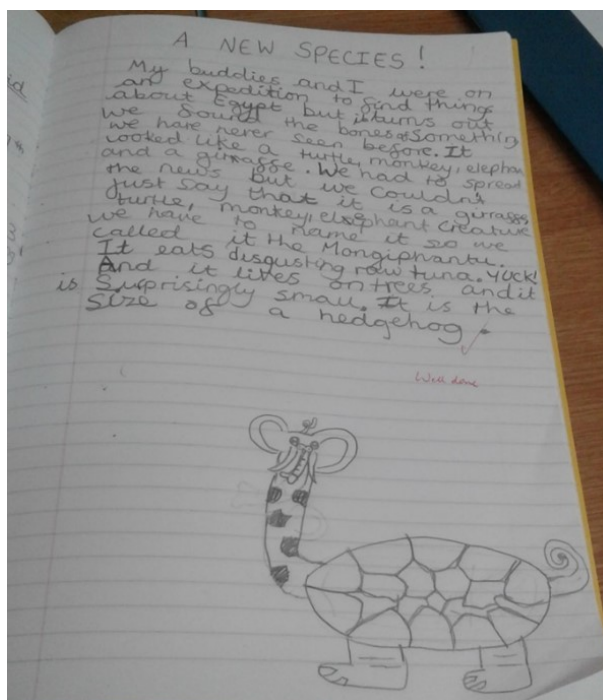 A NEW SPECIES!
My buddies and I were on
an expedition to find things
about Egypt but it turns out
we found the bones of something
we have never seen before. It
looked like a turtle, monkey, elephan
and a giraffe. We had to spread
the news but we couldn't
just say that it is a giraffe,
turtle, monkey, elephant creature
we have to name it so we
called it the Mongiphantu.
It eats disgusting raw tuna. YUCK!
And it lives on trees and it
is Surprisingly small. It is the
size of a hedgehog
Well done